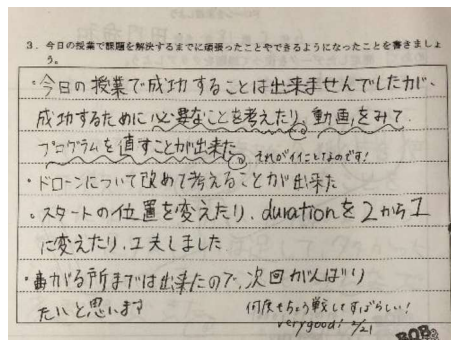 3．今日の授業で課題を解決するまでに頑張ったことやできるようになったことを書きましょ
う。
・今日の授業で成功することは出来ませんでしたが、
成功するために必要なことを考えたり、動画をみて
プログラムを直すことが出来た それがイイことなのです!
・ドローンについて改めて考えることが出来た
。スタートの位置を変えたり、durationを2から1
に変えたり、工夫しました
・曲がる所までは出来たので、次回がんばり
たいと思います 何度もちょう戦してすばらしい!
verygood! 2/21